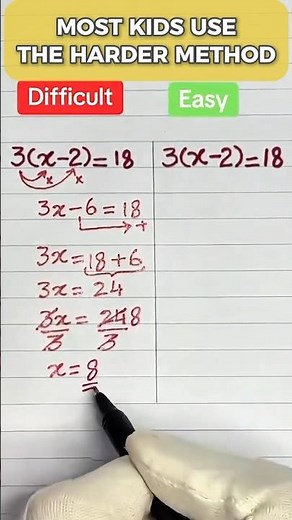 MOST KIDS USE
THE HARDER METHOD
Difficult
Easy
3(x-2)=18
x x
3x-6=18
+
3x=18+6
3x=24
3x/3 = 24/3 8
x=8
3(x-2)=18